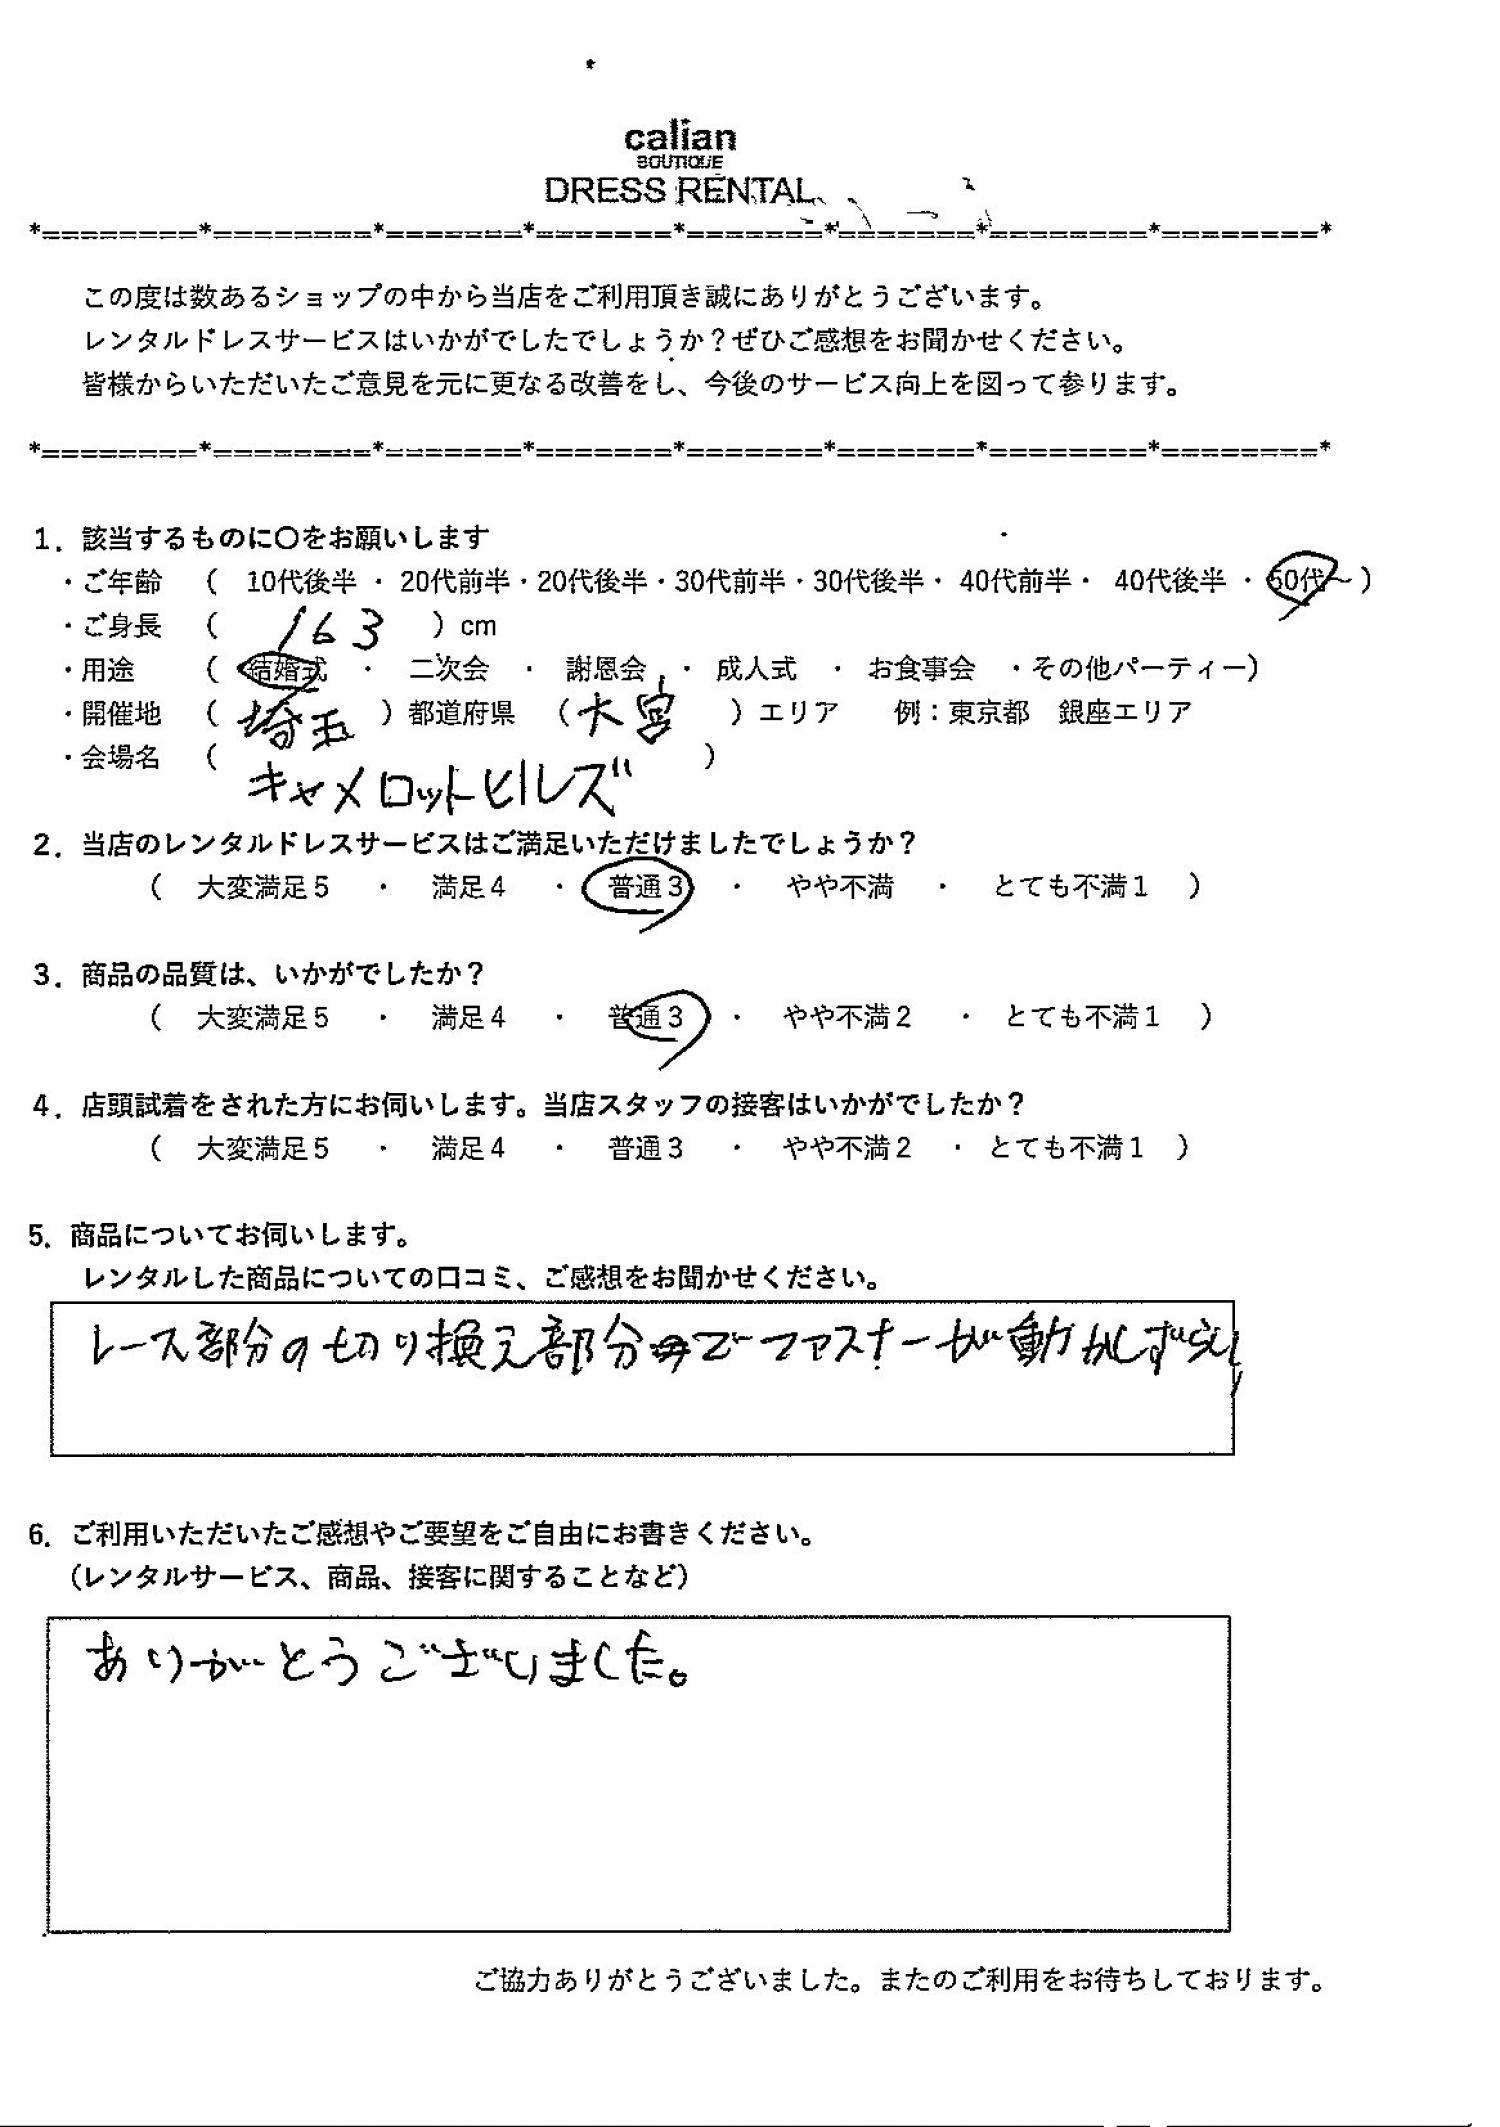 calian
BOUTIQUE
DRESS RENTAL
*========*========*=======*=======*=======*=======*========*========*
この度は数あるショップの中から当店をご利用頂き誠にありがとうございます。
レンタルドレスサービスはいかがでしたでしょうか？ぜひご感想をお聞かせください。
皆様からいただいたご意見を元に更なる改善をし、今後のサービス向上を図って参ります。
*========*========*=======*=======*=======*=======*========*========*
1．該当するものに〇をお願いします
・ご年齢 （ 10代後半 ・ 20代前半・20代後半・30代前半・30代後半・ 40代前半・ 40代後半 ・50代～）
・ご身長 （ 163 ）cm
・用途 （ 結婚式 ・ 二次会 ・ 謝恩会 ・ 成人式 ・ お食事会 ・その他パーティー）
・開催地 （ 埼玉 ）都道府県 （ 大宮 ）エリア 例：東京都 銀座エリア
・会場名 （ キャメロットヒルズ ）
2．当店のレンタルドレスサービスはご満足いただけましたでしょうか？
（ 大変満足５ ・ 満足４ ・ 普通３ ・ やや不満 ・ とても不満１ ）
3．商品の品質は、いかがでしたか？
（ 大変満足５ ・ 満足４ ・ 普通３ ・ やや不満２ ・ とても不満１ ）
4．店頭試着をされた方にお伺いします。当店スタッフの接客はいかがでしたか？
（ 大変満足５ ・ 満足４ ・ 普通３ ・ やや不満２ ・ とても不満１ ）
5．商品についてお伺いします。
レンタルした商品についての口コミ、ご感想をお聞かせください。
レース部分の切り換え部分でファスナーが動かしずらい
6．ご利用いただいたご感想やご要望をご自由にお書きください。
（レンタルサービス、商品、接客に関することなど）
ありがとうございました。
ご協力ありがとうございました。またのご利用をお待ちしております。